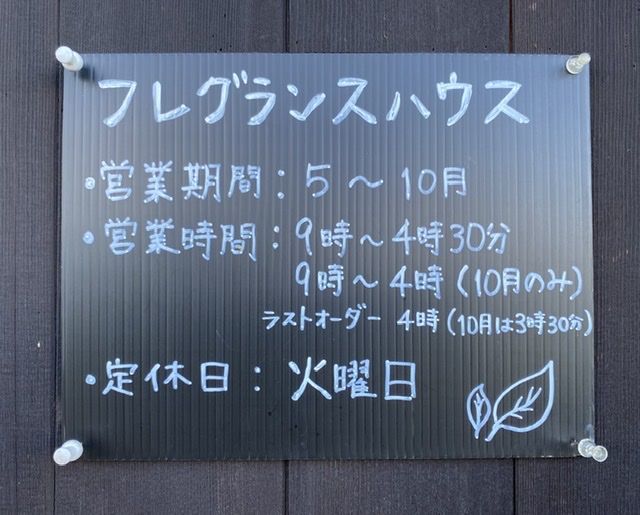 フレグランスハウス
・営業期間：5～10月
・営業時間：9時～4時30分
9時～4時（10月のみ）
ラストオーダー 4時（10月は3時30分）
・定休日：火曜日